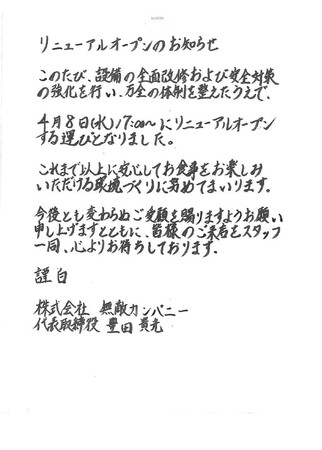 リニューアルオープンのお知らせ
このたび、設備の全面改修および安全対策
の強化を行い、万全の体制を整えたうえで、
4月8日(水)17:00〜にリニューアルオープン
する運びとなりました。
これまで以上に安心してお食事をお楽しみ
いただける環境づくりに努めてまいります。
今後とも変わらぬご愛顧を賜りますようお願い
申し上げますとともに、皆様のご来店をスタッフ
一同、心よりお待ちしております。
謹白
株式会社 無敵カンパニー
代表取締役 豊田 貴光